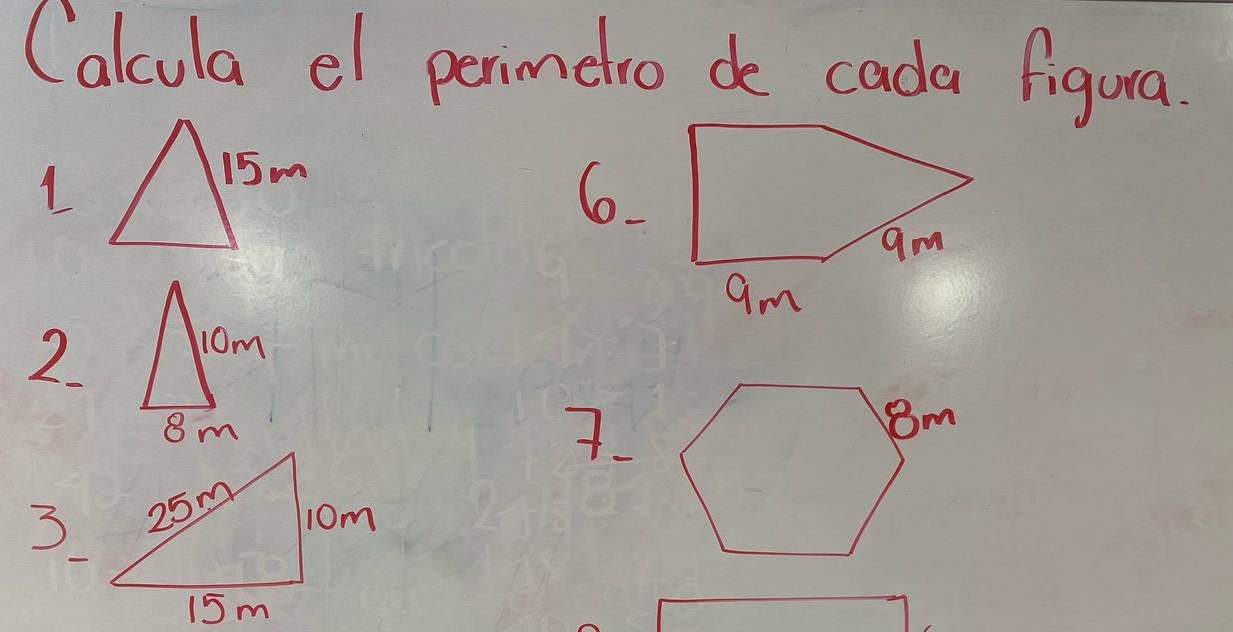 Calcula el perimetro de cada figura.
1
15m
2-
10m
8m
3-
25m
10m
15m
6-
9m
9m
7-
8m